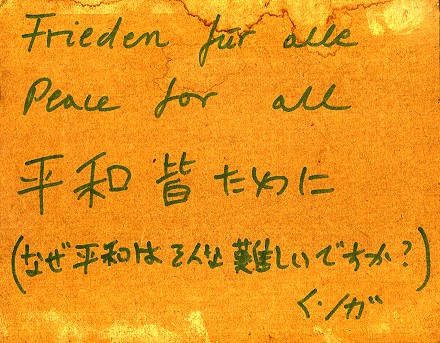 Frieden für alle
Peace for all
平和皆ために
(なぜ平和はそんな難しいですか?)